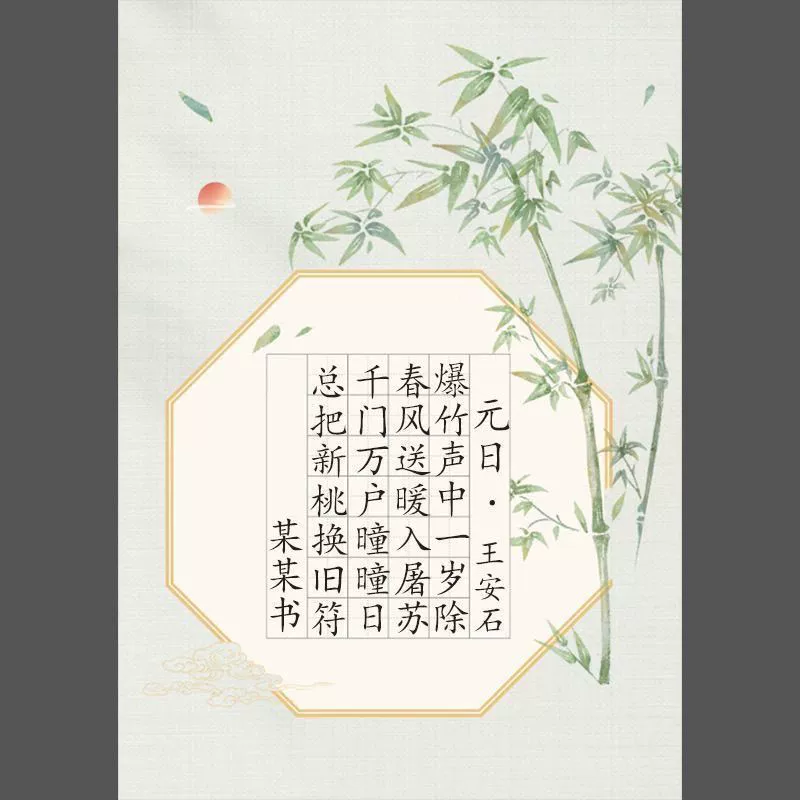 元日·王安石
爆竹声中一岁除
春风送暖入屠苏
千门万户曈曈日
总把新桃换旧符
某某书